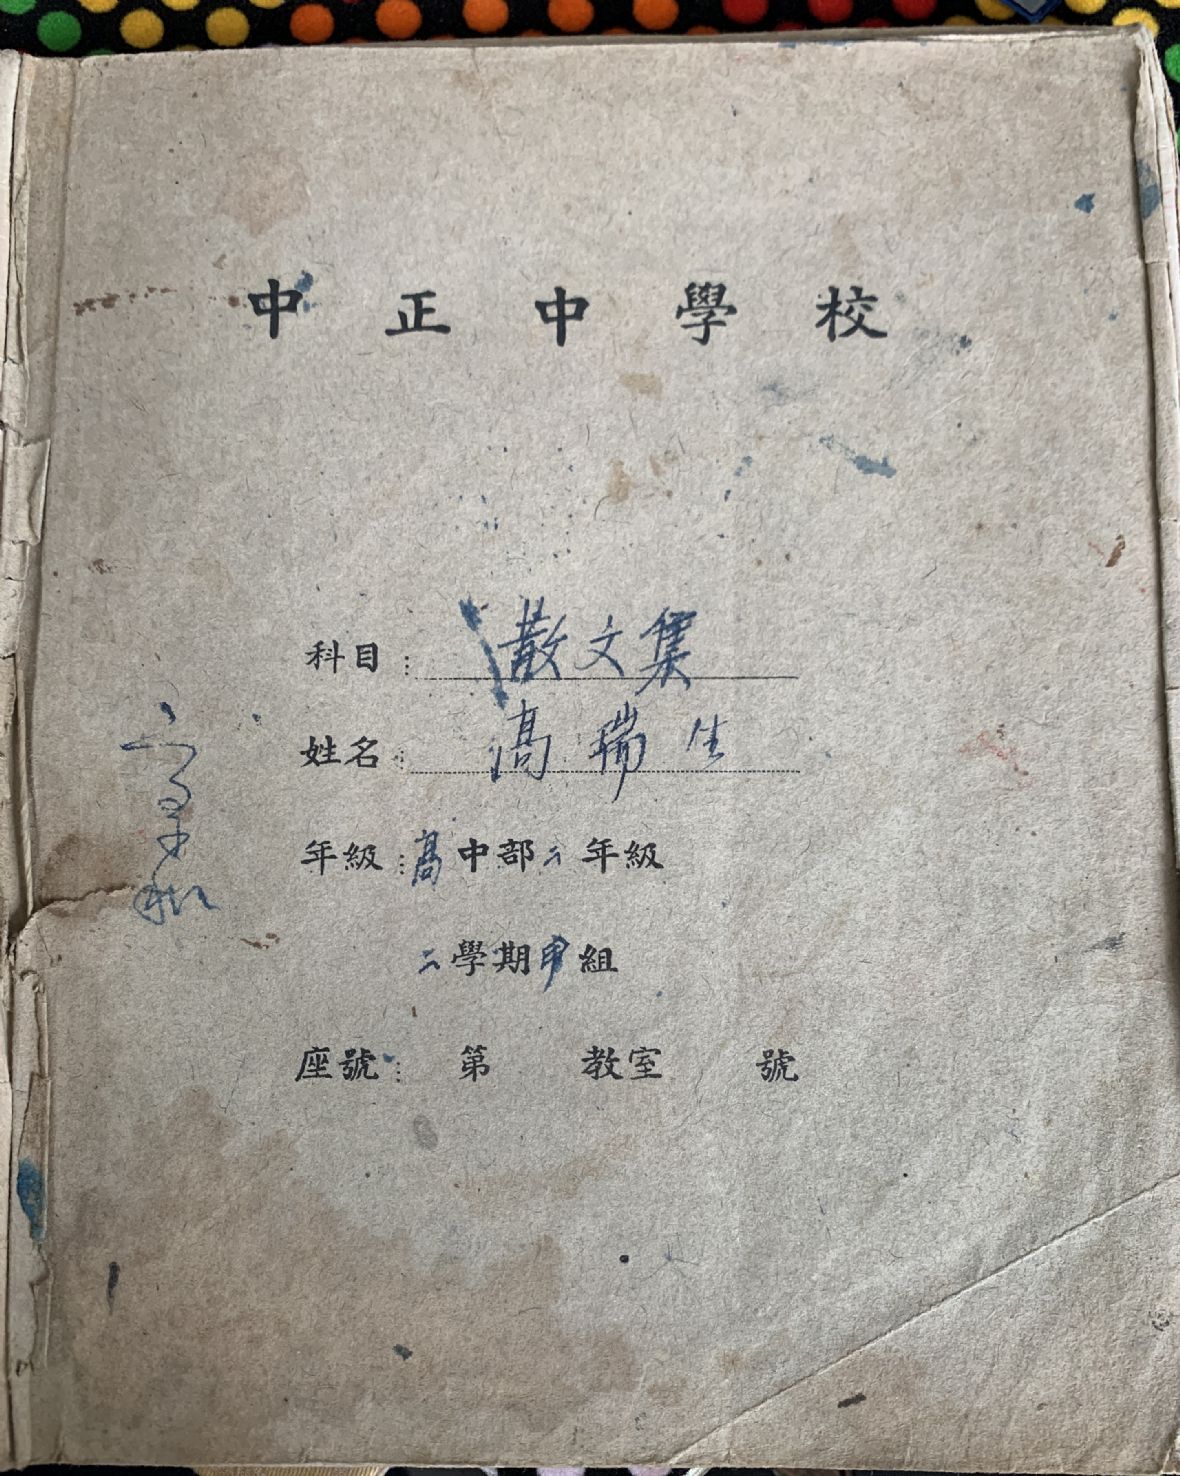 中正中學校
科目：散文集
姓名：高瑞生
年級：高中部二年級
二學期甲組
座號：第 教室 號